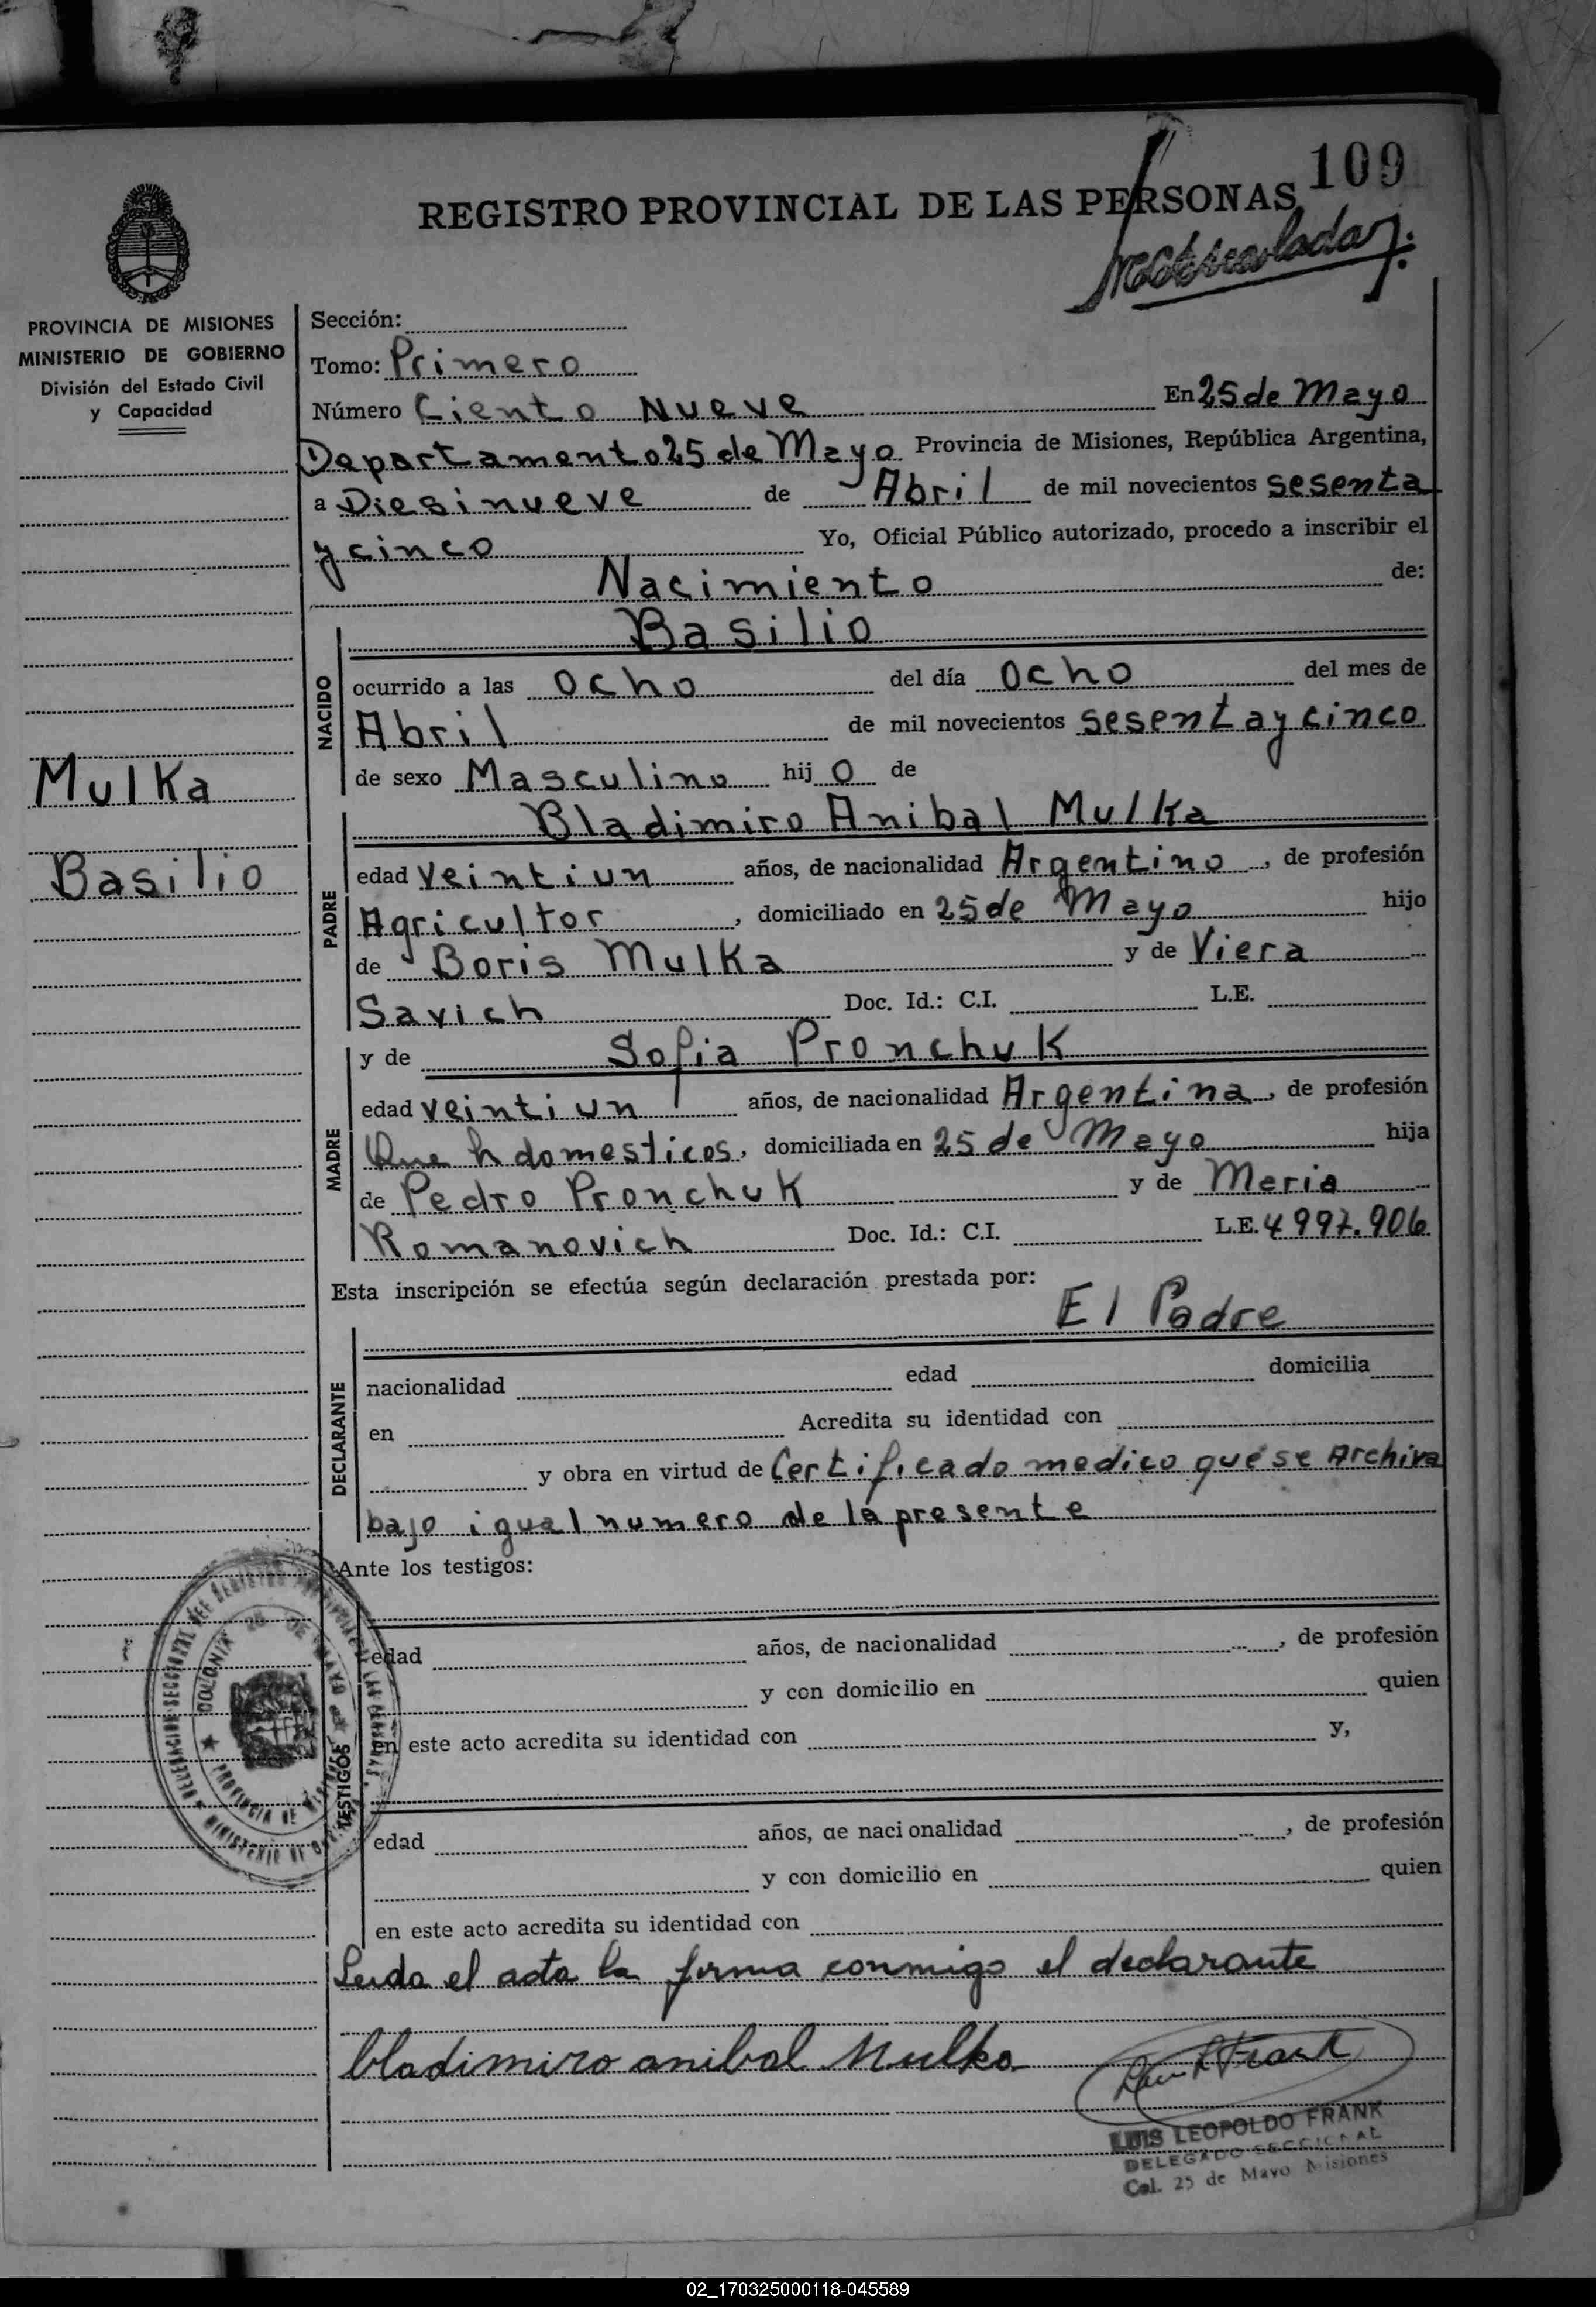 109
REGISTRO PROVINCIAL DE LAS PERSONAS
PROVINCIA DE MISIONES
MINISTERIO DE GOBIERNO
División del Estado Civil
y Capacidad
Sección:
Tomo: Primero
Número Ciento Nueve En 25 de Mayo
Departamento 25 de Mayo Provincia de Misiones, República Argentina,
a Diesinueve de Abril de mil novecientos sesenta
y cinco Yo, Oficial Público autorizado, procedo a inscribir el
Nacimiento de:
Basilio
NACIDO
ocurrido a las ocho del día ocho del mes de
Abril de mil novecientos sesenta y cinco
de sexo Masculino hij o de
Mulka
Basilio
Bladimiro Anibal Mulka
PADRE
edad veintiun años, de nacionalidad Argentino, de profesión
Agricultor, domiciliado en 25 de Mayo hijo
de Boris Mulka y de Viera
Savich Doc. Id.: C.I. L.E.
y de Sofia Pronchuk
MADRE
edad veintiun años, de nacionalidad Argentina, de profesión
Que h domesticos, domiciliada en 25 de Mayo hija
de Pedro Pronchuk y de Maria
Romanovich Doc. Id.: C.I. L.E. 4997.906
Esta inscripción se efectúa según declaración prestada por:
El Padre
DECLARANTE
nacionalidad edad domicilia
en Acredita su identidad con
y obra en virtud de Certificado medico que se Archiva
bajo igual numero de la presente
Ante los testigos:
TESTIGOS
edad años, de nacionalidad , de profesión
y con domicilio en quien
en este acto acredita su identidad con y,
edad años, de nacionalidad , de profesión
y con domicilio en quien
en este acto acredita su identidad con
COLONIA 25 DE MAYO
PROVINCIA DE MISIONES
Leida el acta la firma conmigo el declarante
bladimiro anibal Mulka
LUIS LEOPOLDO FRANK
DELEGADO SECCIONAL
Col. 25 de Mayo Misiones
02_170325000118-045589